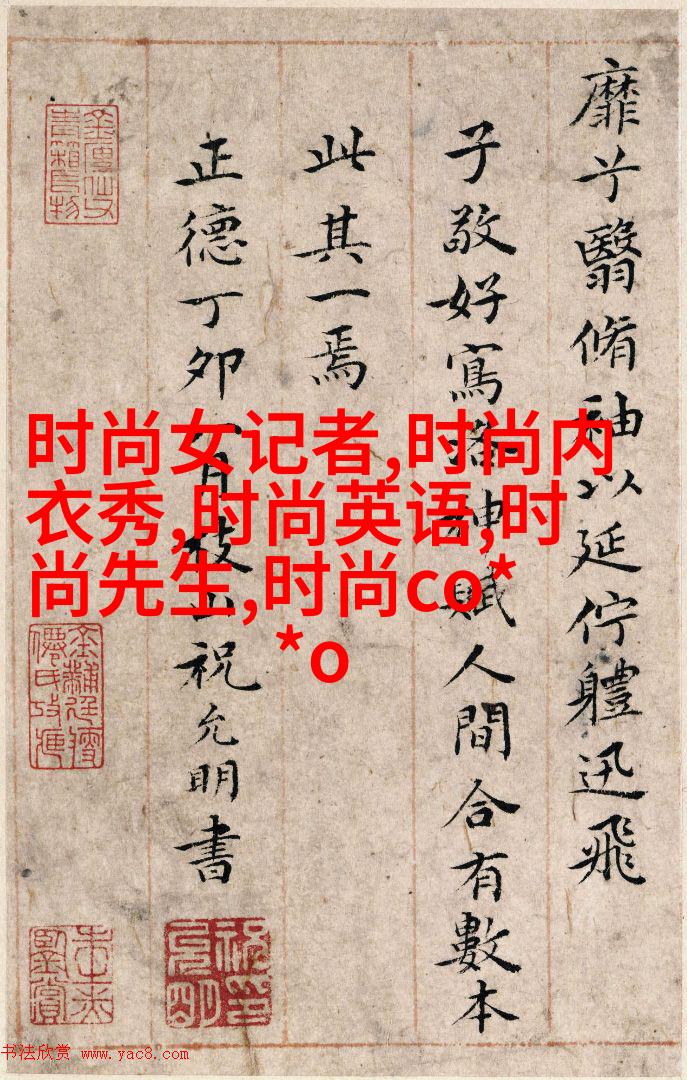 靡兮翳脩袖以延佇體迅飛
子敬好寫洛神賦人間合有數本
此其一焉
正德丁卯八月枝山祝允明書
时尚女记者,时尚内
衣秀,时尚英语,时
尚先生,时尚co*
*o
书法欣赏 www.yac8.com